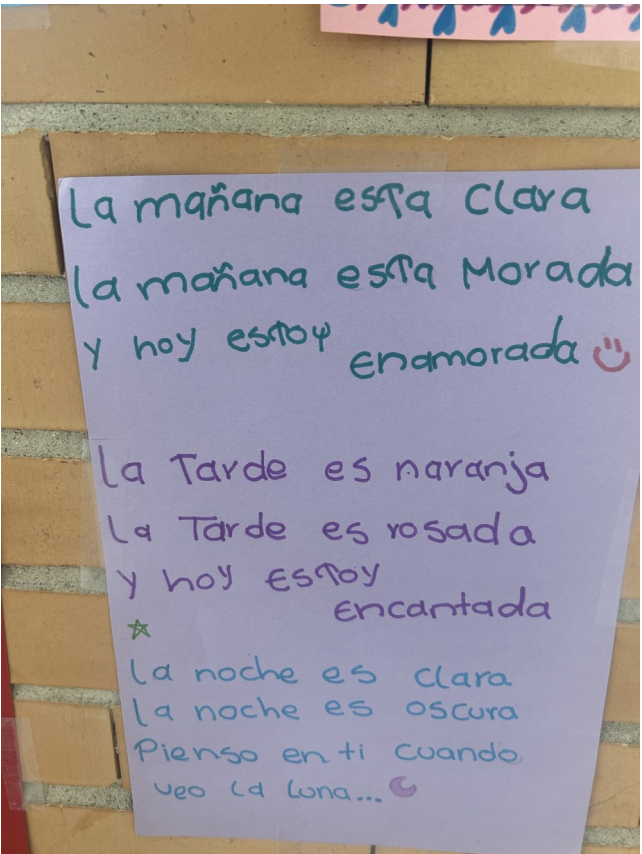 La mañana esta Clara
la mañana esta Morada
y hoy estoy enamorada
la Tarde es naranja
La Tarde es rosada
y hoy Estoy encantada
la noche es clara
la noche es oscura
Pienso en ti cuando
veo la luna...